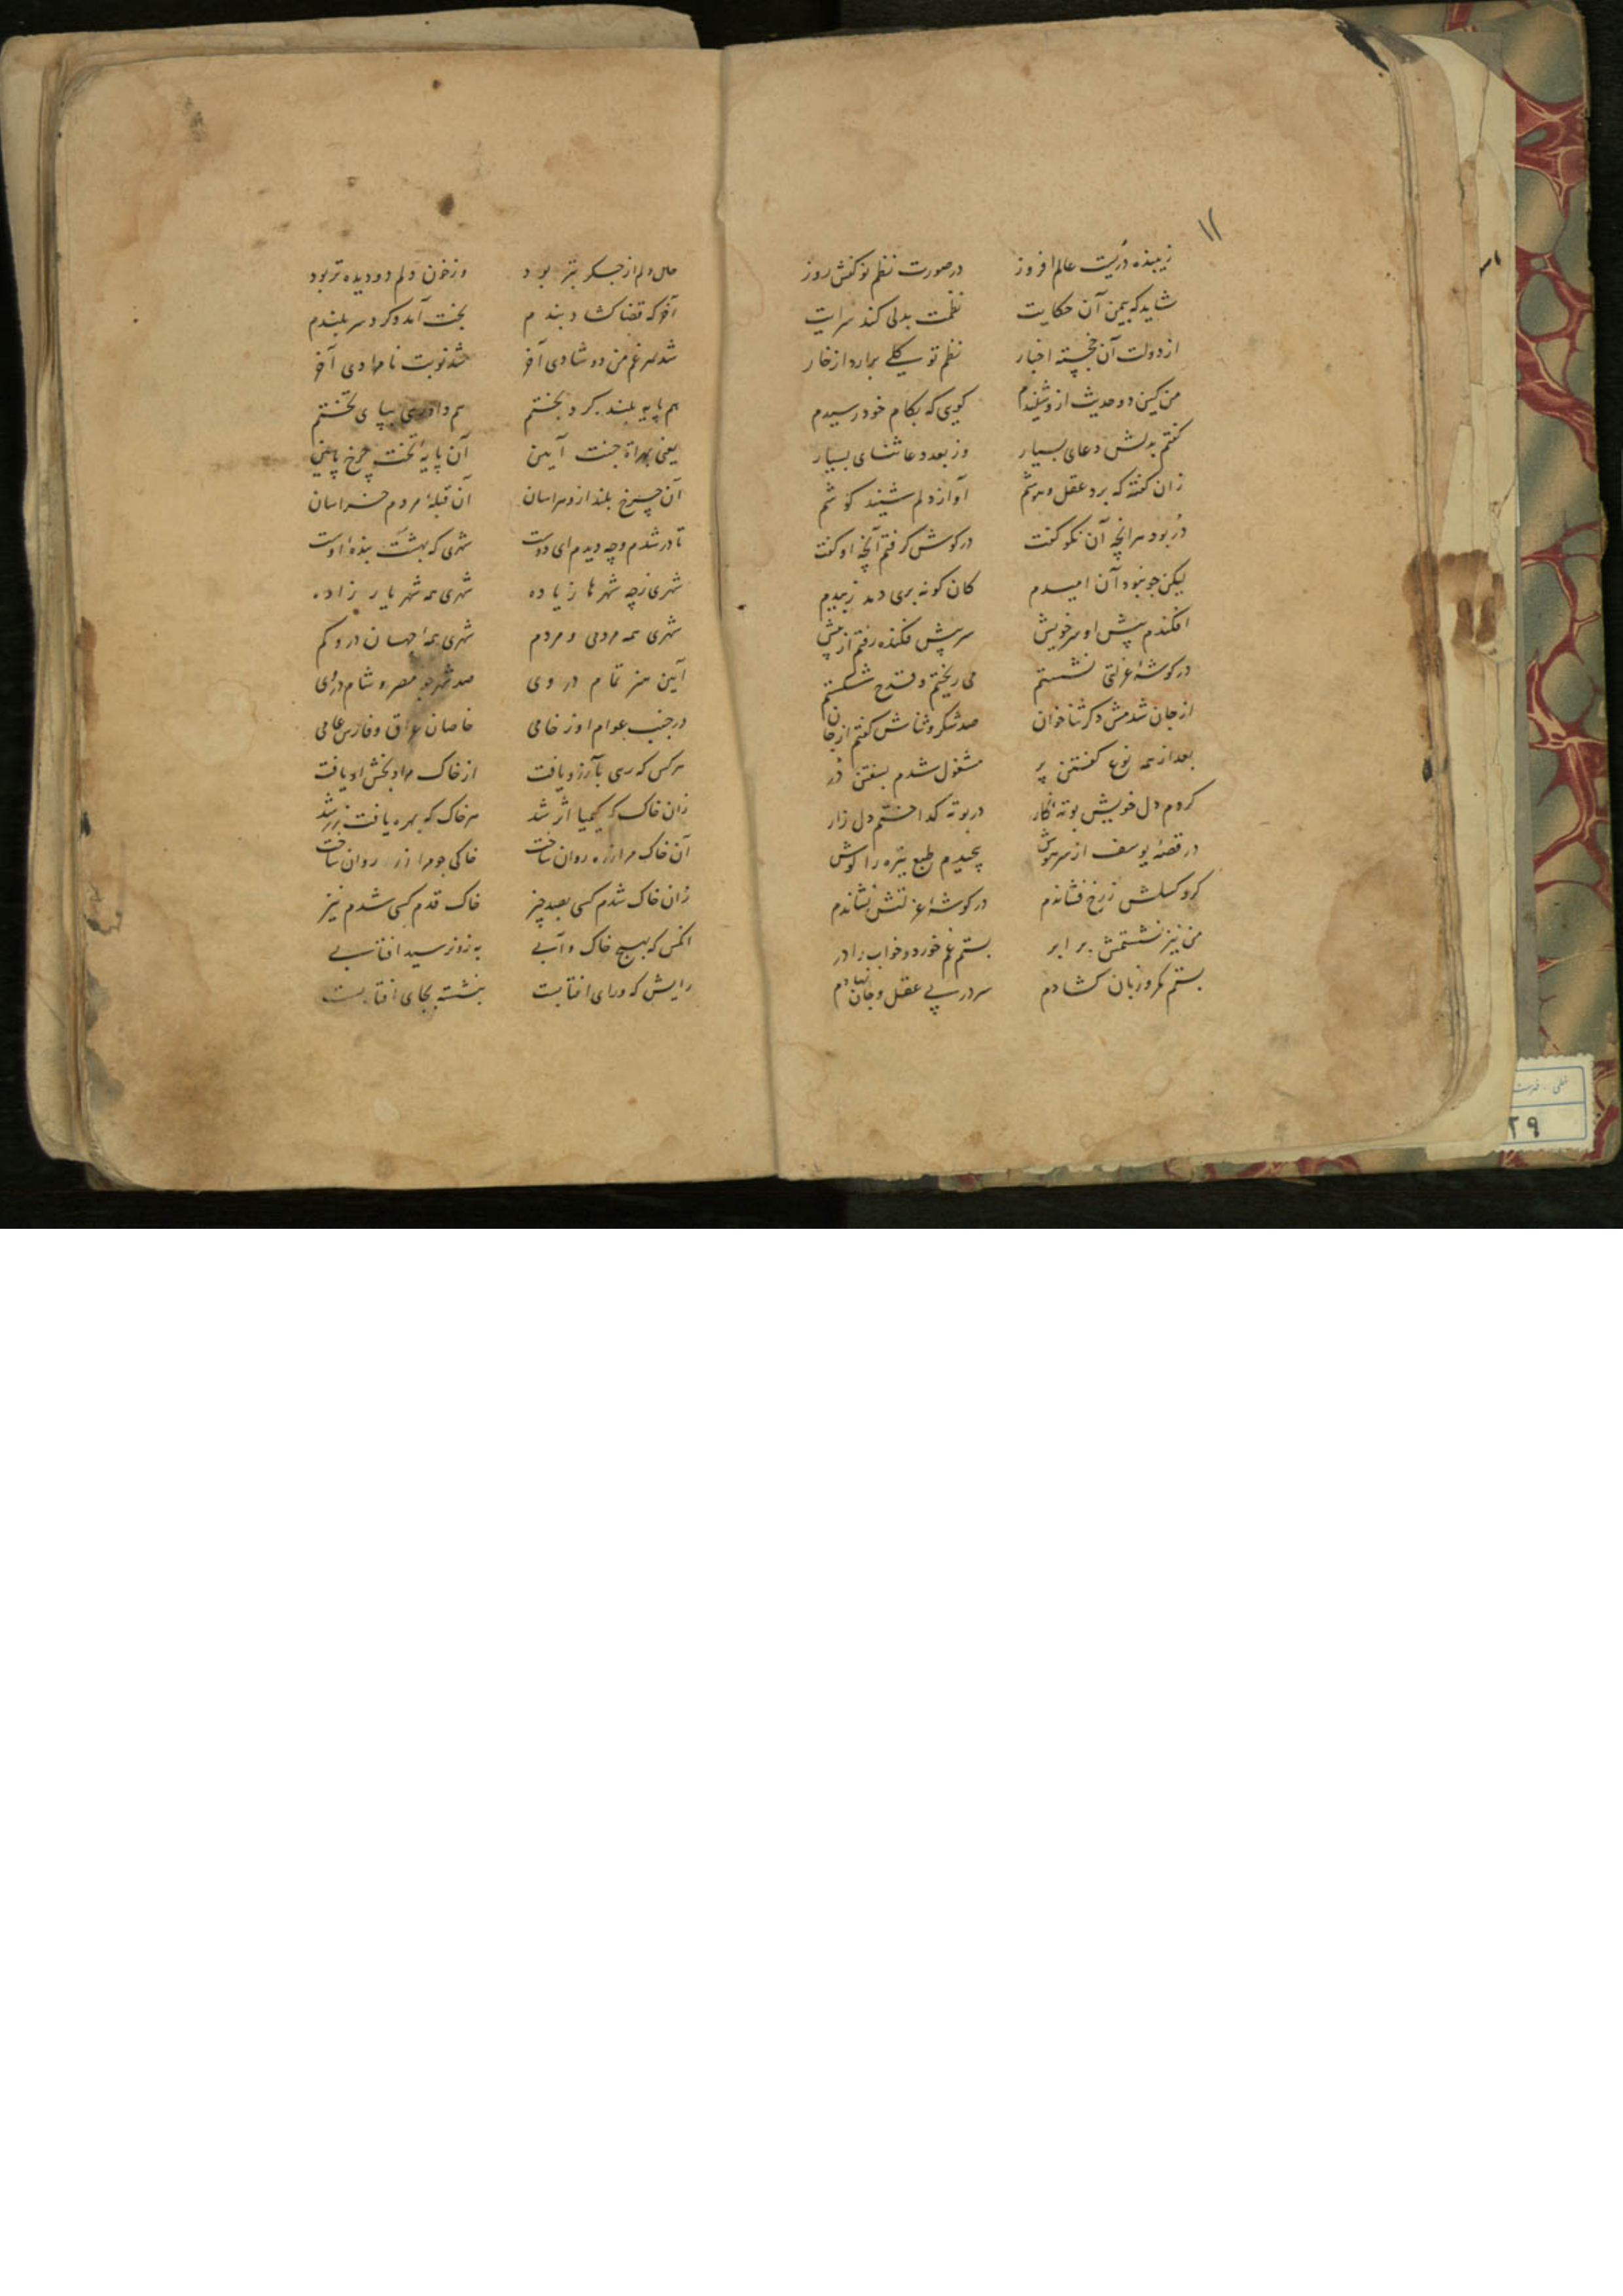 ۱۲
زیبنده دُریست عالم افروز درصورت نظم نوکنش روز
شاید که بیمن آن حکایت نظمت بدلی کند سرایت
از دولت آن خجسته اخبار نظم تو گلی برارد از خار
من کین دو حدیث ازو شنیدم گویی که بکام خود رسیدم
گفتم بدلش دعای بسیار وز بعد دعا ثنای بسیار
زان گفته که برد عقل و هوشم آواز دلم شنید گوشم
دُر بود هرانچه آن نکو گفت در گوش گرفتم آنچه او گفت
لیکن چو نبود آن امیدم کان گونه بری دهد ز بیدم
افکندم پیش او سر خویش سر پیش فکنده رفتم از پیش
در گوشهٔ عزلتی نشستم می ریختم و قدح شکستم
از جان شدمش دگر ثناخوان صد شکر و ثناش گفتم از جان
بعد از همه نوع گفتن پر مشغول شدم بسفتن دُر
کردم دل خویش بوته کار در بوته گداختم دل زار
در قصهٔ یوسف از سر هوش پیچیدم طبع تیره را گوش
گرد کسلش ز رخ فشاندم در گوشهٔ عزلتش نشاندم
من نیز نشستمش برابر بستم غم خورد و خواب را در
بستم مکر و زبان گشادم سر در پی عقل و جان نهادم
حال دلم از جگر بتر بود وز خون دلم دو دیده تر بود
آخر که قضا گشاد بندم بخت آمد و کرد سربلندم
شد هر غم من دو شادی آخر شد نوبت نامرادی آخر
هم پایه بلند کرد بختم هم داد بپای تختم
یعنی بهراة جنت آیین آن پایهٔ تخت چرخ پایین
آن چرخ بلند ازو هراسان آن قبلهٔ مردم خراسان
تا در شدم و چه دیدم ای دوست شهری که بهشت بندهٔ اوست
شهری ز چه شهرها زیاده شهری همه شهریار زاده
شهری همه مردمی و مردم شهری همه جهان درو گم
آیین هنر تمام در وی صد شهر چو مصر و شام در وی
در جنب عوام او ز خامی خاصان عراق و فارس عامی
هر کس که رسی بآرزو یافت از خاک مراد بخش او یافت
زان خاک که کیمیا اثر شد هر خاک که بهره یافت زر شد
آن خاک مرا زره روان ساخت خاکی چو مرا زر روان ساخت
زان خاک شدم کسی بصد چیز خاک قدم کسی شدم نیز
انکس که بهیچ خاک و آبی به زو نرسید افتابی
رایش که ورای افتابست بنشسته بجای افتابست
۲۹